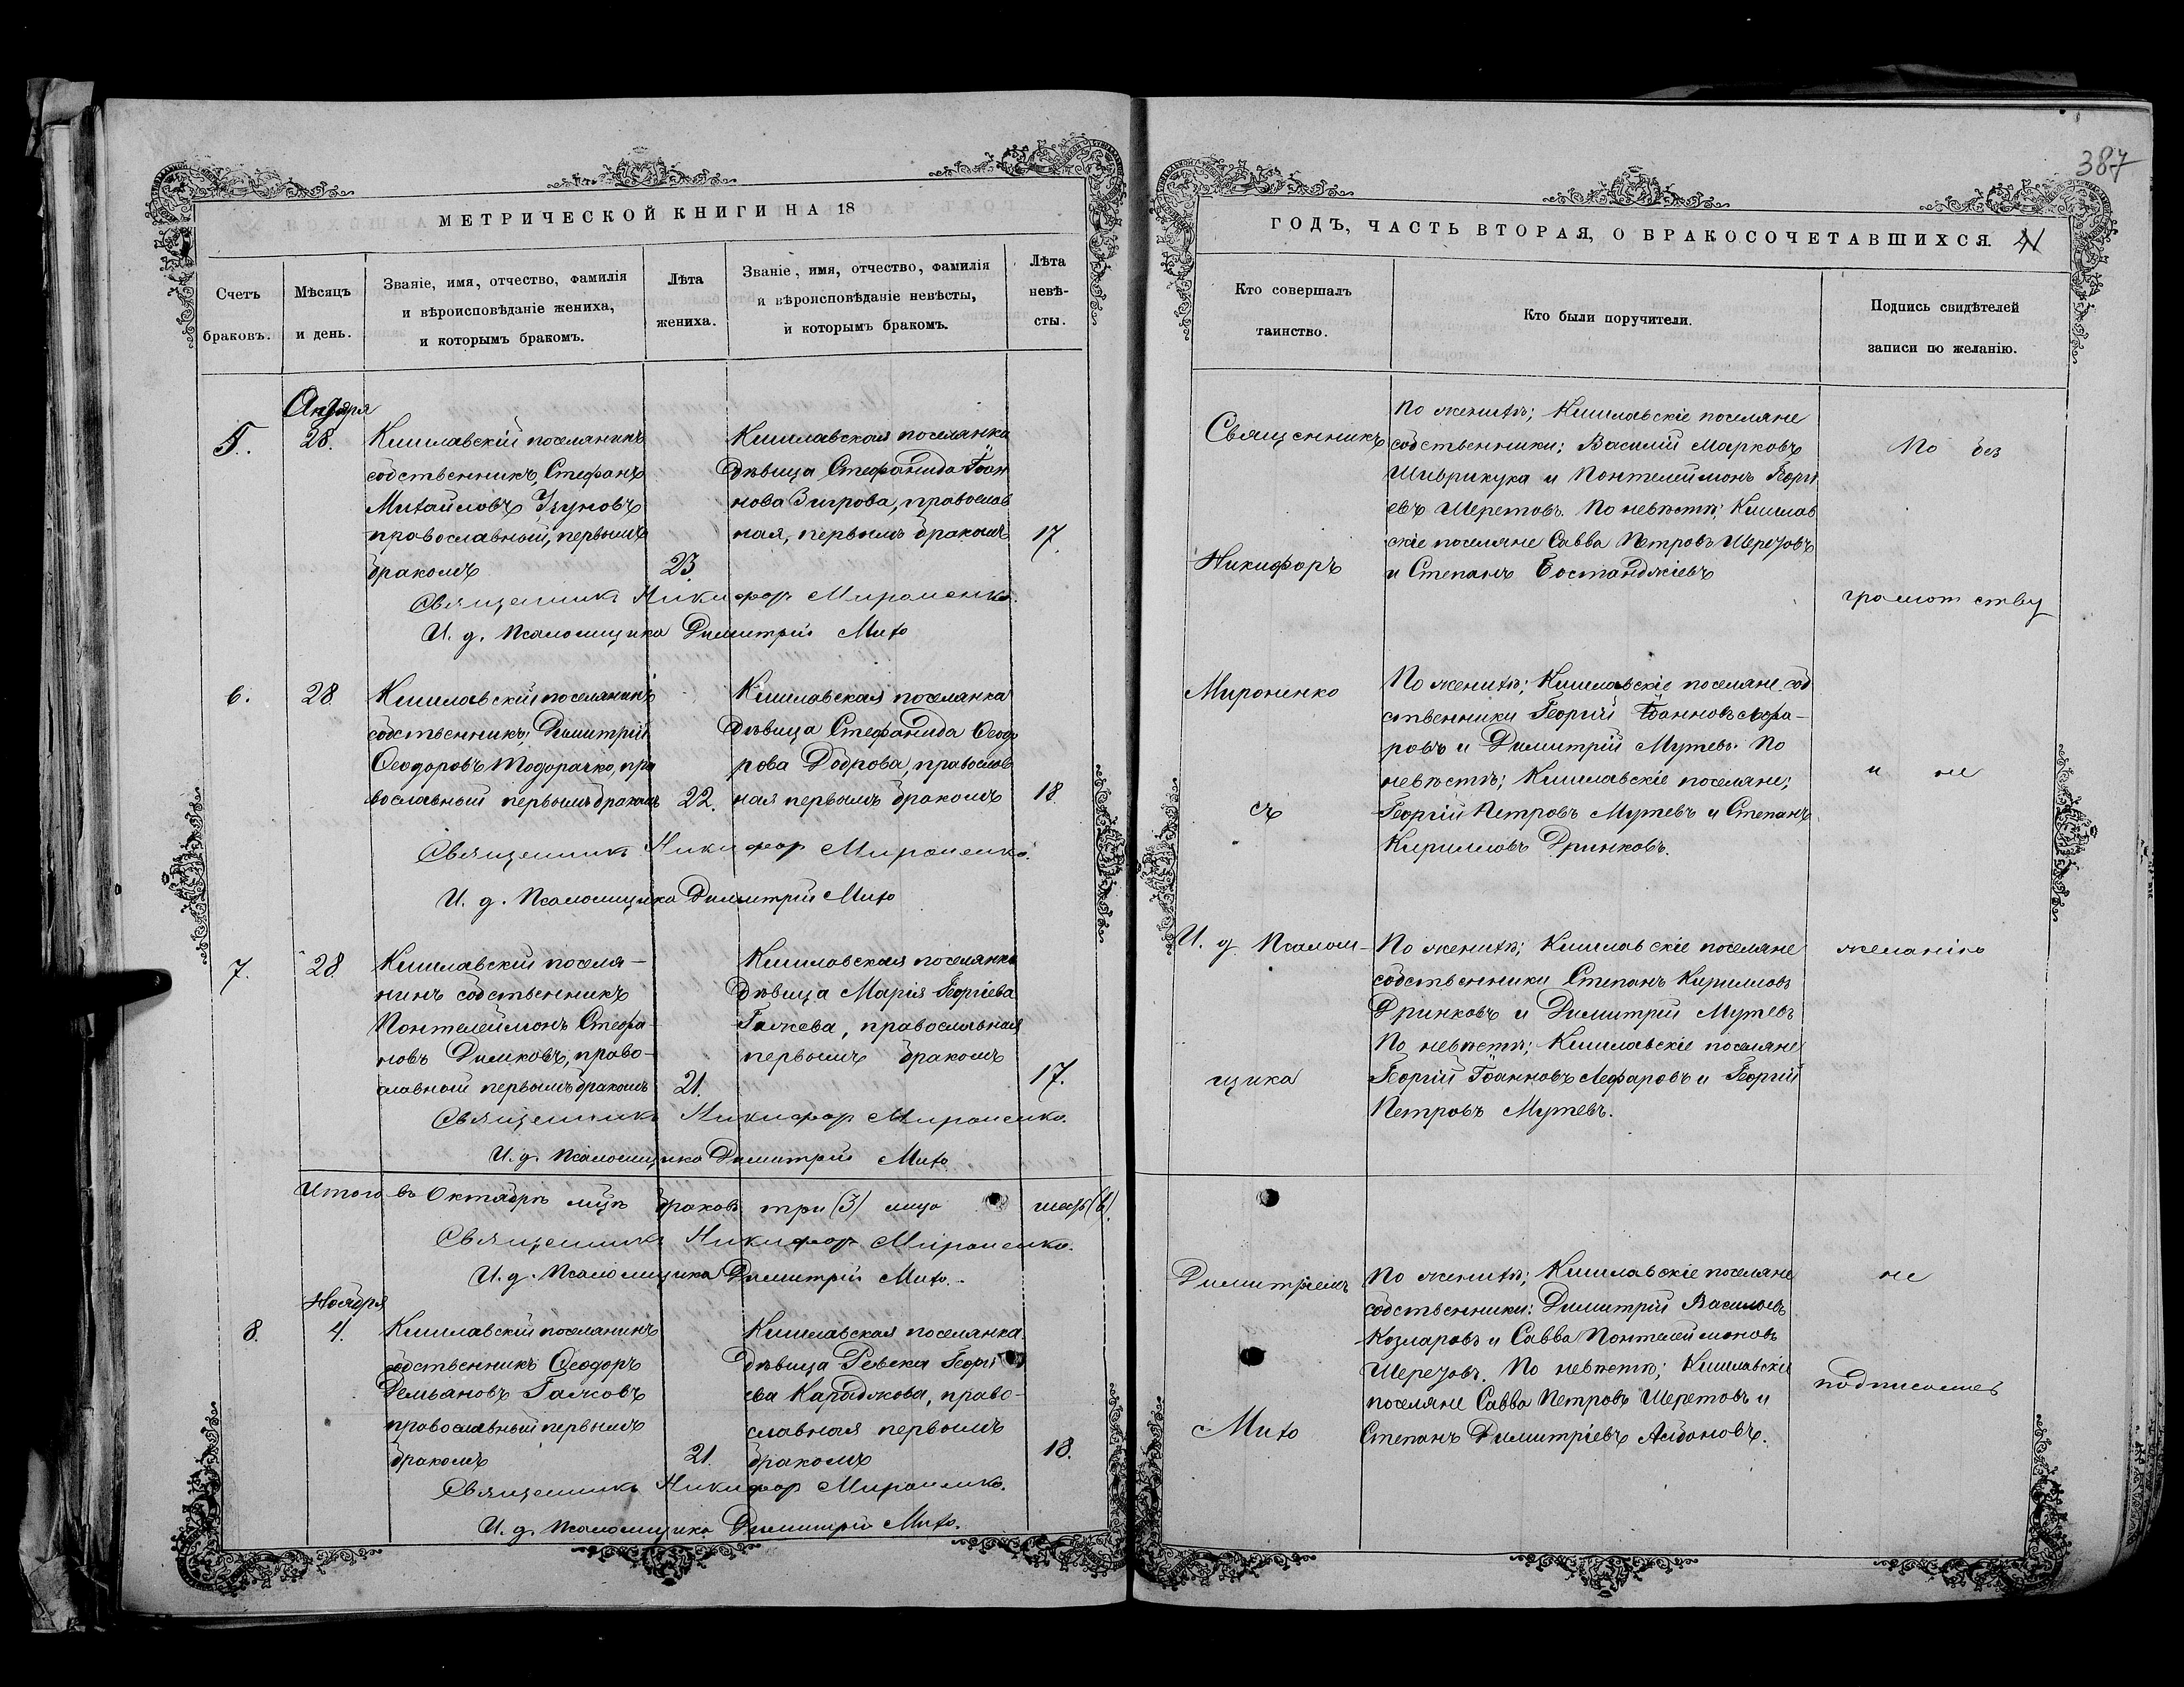 МЕТРИЧЕСКОЙ КНИГИ НА 18
Счетъ браковъ.
Мѣсяцъ и день.
Званіе, имя, отчество, фамилія
и вѣроисповѣданіе жениха,
и которымъ бракомъ.
Лѣта жениха.
Званіе, имя, отчество, фамилія
и вѣроисповѣданіе невѣсты,
и которымъ бракомъ.
Лѣта невѣ-
сты.
5.
28.
Кишлавскій поселянинъ
собственникъ, Стефанъ
Михайловъ Узуновъ
православный, первымъ
бракомъ
23.
Кишлавская поселянка
дѣвица Стефанида Іоан
нова Згурова, православ
ная, первымъ бракомъ
17.
Священникъ Никифоръ Мироненко.
И. д. Псаломщика Димитрій Михо
6.
28.
Кишлавскій поселянинъ
собственникъ; Димитрій
Ѳеодоровъ Тодорачко, пра
вославный первымъ бракомъ
22.
Кишлавская поселянка
дѣвица Стефанида Ѳеодо
рова Доброва, православ
ная первымъ бракомъ
18.
Священникъ Никифоръ Мироненко.
И. д. Псаломщика Димитрій Михо
7.
28.
Кишлавскій поселя-
нинъ собственникъ
Понтелеймонъ Стефа-
новъ Димковъ, право-
славный первымъ бракомъ
21.
Кишлавская поселянка
дѣвица Марія Георгіева
Галчева, православная
первымъ бракомъ
17.
Священникъ Никифоръ Мироненко.
И. д. Псаломщика Димитрій Михо
Итого въ Октябрѣ мцѣ браковъ три (3) лица шесть (6).
Священникъ Никифоръ Мироненко.
И. д. Псаломщика Димитрій Михо.
Ноября
8.
4.
Кишлавскій поселянинъ
собственникъ Ѳеодоръ
Демьяновъ Галчовъ
православный первымъ
бракомъ
21.
Кишлавская поселянка
дѣвица Ревека Георгі
ева Карабджова, право-
славная первымъ
бракомъ
18.
Священникъ Никифоръ Мироненко.
И. д. Псаломщика Димитрій Михо.
387
ГОДЪ, ЧАСТЬ ВТОРАЯ, О БРАКОСОЧЕТАВШИХСЯ.
Кто совершалъ
таинство.
Кто были поручители.
Подпись свидѣтелей
записи по желанію.
Священникъ
Никифоръ
Мироненко
съ
И. д. Псалом-
щика
Димитріемъ
Михо
По женихѣ; Кишлавскіе поселяне
собственники; Василій Марковъ
Шиврикука и Понтелеймонъ Георгі
евъ Шеретовъ. По невѣстѣ; Кишлав
скіе поселяне Савва Петровъ Шерезовъ
и Степанъ Бостанджіевъ
По женихѣ; Кишлавскіе поселяне соб
ственники Георгій Іоанновъ Лефа-
ровъ и Димитрій Мутевъ. По
невѣстѣ; Кишлавскіе поселяне;
Георгій Петровъ Мутевъ и Степанъ
Кирилловъ Дринковъ.
По женихѣ; Кишлавскіе поселяне
собственники Степанъ Кирилловъ
Дринковъ и Димитрій Мутевъ
По невѣстѣ; Кишлавскіе поселяне
Георгій Іоанновъ Лефаровъ и Георгій
Петровъ Мутевъ.
По женихѣ; Кишлавскіе поселяне
собственники: Димитрій Васильевъ
Козларовъ и Савва Понтелеймоновъ
Шерезовъ. По невѣстѣ; Кишлавскіе
поселяне Савва Петровъ Шеретовъ и
Степанъ Димитріевъ Айдановъ.
По без
грамотству
и не
желанію
не
подписались